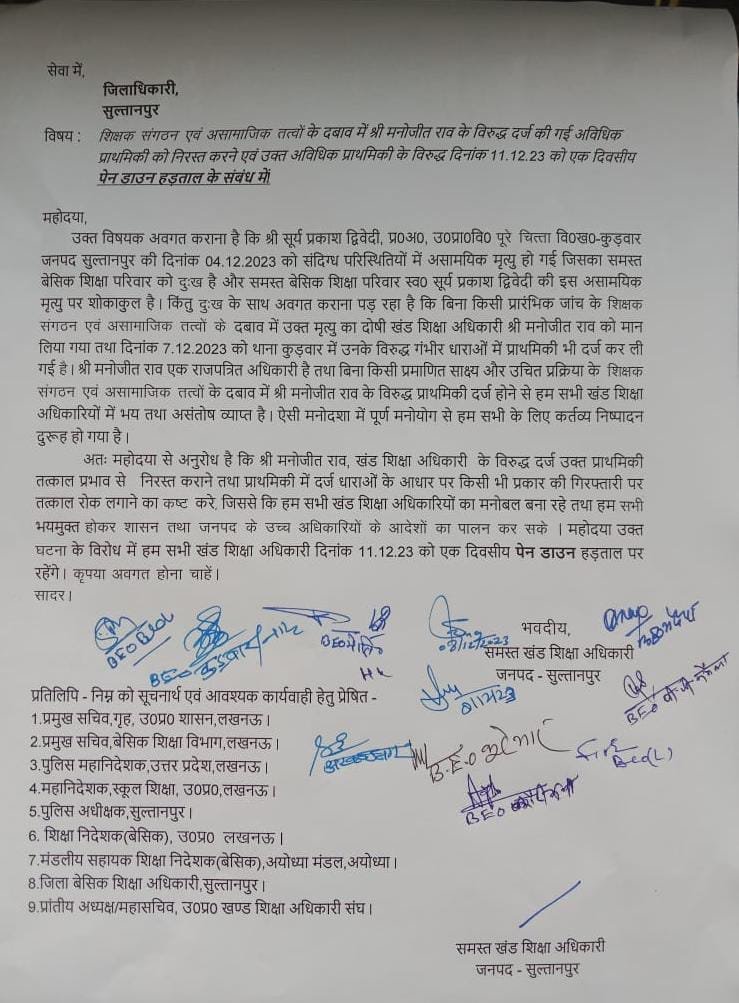 सेवा में,
जिलाधिकारी,
सुल्तानपुर
विषय : शिक्षक संगठन एवं असामाजिक तत्वों के दबाव में श्री मनोजीत राव के विरुद्ध दर्ज की गई अविधिक
प्राथमिकी को निरस्त करने एवं उक्त अविधिक प्राथमिकी के विरुद्ध दिनांक 11.12.23 को एक दिवसीय
पेन डाउन हड़ताल के संबंध में।
महोदया,
उक्त विषयक अवगत कराना है कि श्री सूर्य प्रकाश द्विवेदी, प्र०अ०, उ०प्रा०वि० पूरे चित्ता वि०ख०-कुड़वार
जनपद सुल्तानपुर की दिनांक 04.12.2023 को संदिग्ध परिस्थितियों में असामयिक मृत्यु हो गई जिसका समस्त
बेसिक शिक्षा परिवार को दुःख है और समस्त बेसिक शिक्षा परिवार स्व० सूर्य प्रकाश द्विवेदी की इस असामयिक
मृत्यु पर शोकाकुल है। किंतु दुःख के साथ अवगत कराना पड़ रहा है कि बिना किसी प्रारंभिक जांच के शिक्षक
संगठन एवं असामाजिक तत्वों के दबाव में उक्त मृत्यु का दोषी खंड शिक्षा अधिकारी श्री मनोजीत राव को मान
लिया गया तथा दिनांक 7.12.2023 को थाना कुड़वार में उनके विरुद्ध गंभीर धाराओं में प्राथमिकी भी दर्ज कर ली
गई है। श्री मनोजीत राव एक राजपत्रित अधिकारी है तथा बिना किसी प्रमाणित साक्ष्य और उचित प्रक्रिया के शिक्षक
संगठन एवं असामाजिक तत्वों के दबाव में श्री मनोजीत राव के विरुद्ध प्राथमिकी दर्ज होने से हम सभी खंड शिक्षा
अधिकारियों में भय तथा असंतोष व्याप्त है। ऐसी मनोदशा में पूर्ण मनोयोग से हम सभी के लिए कर्तव्य निष्पादन
दुरूह हो गया है।
अतः महोदया से अनुरोध है कि श्री मनोजीत राव, खंड शिक्षा अधिकारी के विरुद्ध दर्ज उक्त प्राथमिकी
तत्काल प्रभाव से निरस्त कराने तथा प्राथमिकी में दर्ज धाराओं के आधार पर किसी भी प्रकार की गिरफ्तारी पर
तत्काल रोक लगाने का कष्ट करे, जिससे कि हम सभी खंड शिक्षा अधिकारियों का मनोबल बना रहे तथा हम सभी
भयमुक्त होकर शासन तथा जनपद के उच्च अधिकारियों के आदेशों का पालन कर सके । महोदया उक्त
घटना के विरोध में हम सभी खंड शिक्षा अधिकारी दिनांक 11.12.23 को एक दिवसीय पेन डाउन हड़ताल पर
रहेंगे। कृपया अवगत होना चाहें।
सादर।
BEO
BEO कुड़वार
BEO
08/12/2023
भवदीय,
समस्त खंड शिक्षा अधिकारी
जनपद - सुल्तानपुर
BEO
प्रतिलिपि - निम्न को सूचनार्थ एवं आवश्यक कार्यवाही हेतु प्रेषित -
1.प्रमुख सचिव,गृह, उ०प्र० शासन,लखनऊ।
2.प्रमुख सचिव,बेसिक शिक्षा विभाग,लखनऊ।
3.पुलिस महानिदेशक,उत्तर प्रदेश,लखनऊ।
4.महानिदेशक,स्कूल शिक्षा, उ०प्र०,लखनऊ।
5.पुलिस अधीक्षक,सुल्तानपुर।
6. शिक्षा निदेशक(बेसिक), उ०प्र० लखनऊ।
7.मंडलीय सहायक शिक्षा निदेशक(बेसिक),अयोध्या मंडल,अयोध्या।
8.जिला बेसिक शिक्षा अधिकारी,सुल्तानपुर।
9.प्रांतीय अध्यक्ष/महासचिव, उ०प्र० खण्ड शिक्षा अधिकारी संघ।
B.E.O
BEO
समस्त खंड शिक्षा अधिकारी
जनपद - सुल्तानपुर